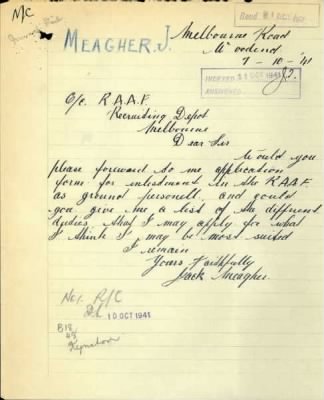 N/C
MEAGHER. J.
Melbourne Road
Woodend
7 - 10 - '41
INDEXED 11 OCT 1941
ANSWERED
O/c. R A A F
Recruiting Depot
Melbourne
Dear Sir
Would you
please forward to me application
form for enlistment in the R.A.A.F.
as ground personell and could
you give me a list of the different
duties that I may apply for what
I think I may be most suited
I remain
Yours faithfully
Jack Meagher
No1. R/C
10 OCT 1941
B18
45
Kyneton